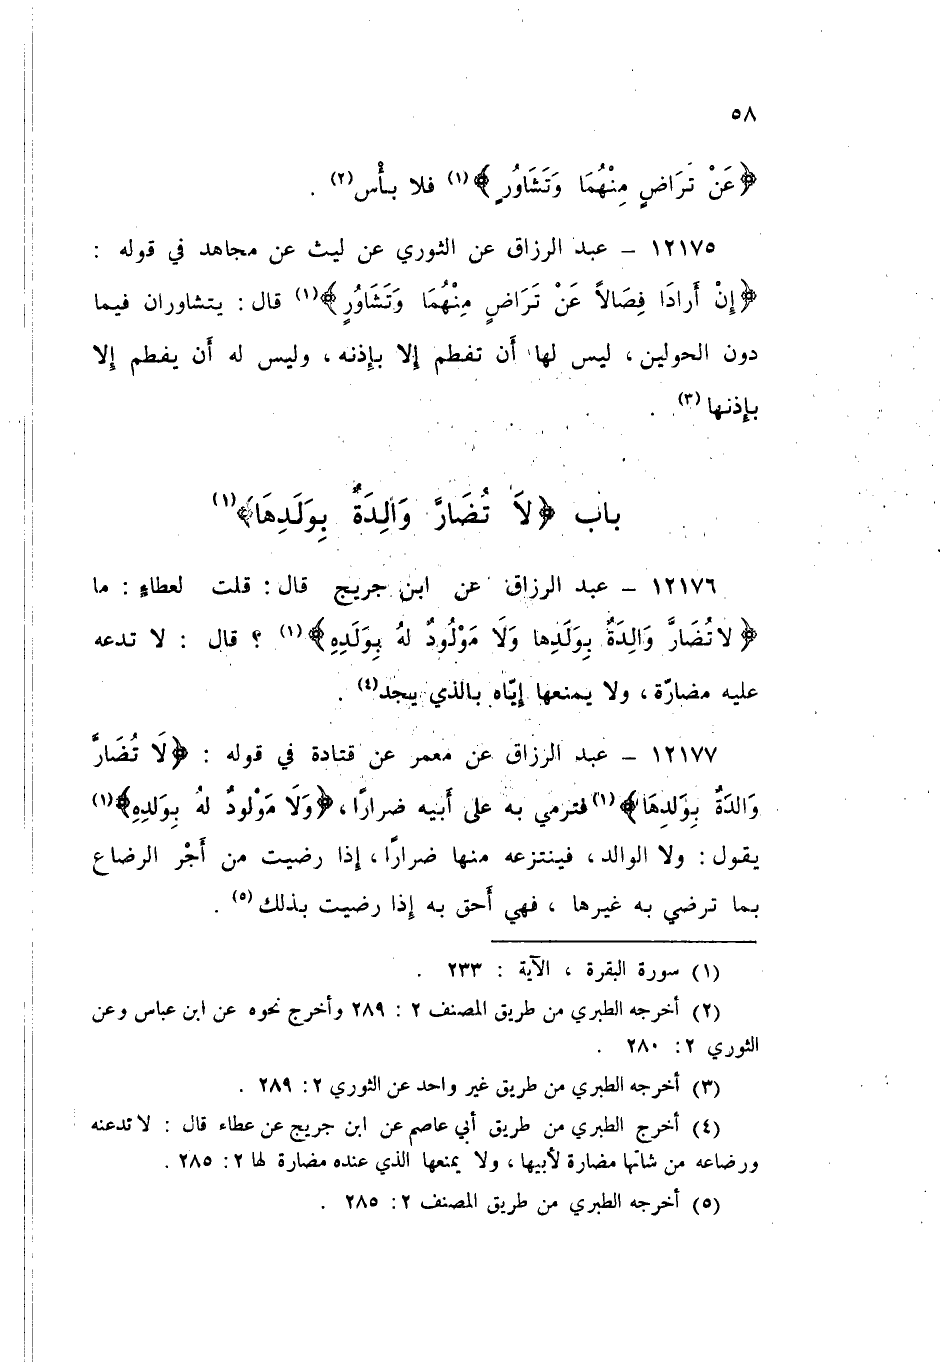 ٥٨
﴿عَنْ تَرَاضٍ مِنْهُمَا وَتَشَاوُرٍ﴾(١) فلا بأْس(٢) .
١٢١٧٥ – عبد الرزاق عن الثوري عن ليث عن مجاهد في قوله :
﴿إِنْ أَرادَا فِصَالاً عَنْ تَرَاضٍ مِنْهُمَا وَتَشَاوُرٍ﴾(١) قال : يتشاوران فيما
دون الحولين ، ليس لها أَن تفطم إلا بإذنه ، وليس له أَن يفطم إلا
بإذنها(٣) .
باب ﴿لاَ تُضَارَّ وَالِدَةٌ بِوَلَدِهَا﴾(١)
١٢١٧٦ – عبد الرزاق عن ابن جريج قال : قلت لعطاءٍ : ما
﴿لاتُضَارَّ وَالِدَةٌ بِوَلَدِها وَلَا مَوْلُودٌ لهُ بِوَلَدِهِ﴾(١) ؟ قال : لا تدعه
عليه مضارّة ، ولا يمنعها إيّاه بالذي يجد(٤) .
١٢١٧٧ – عبد الرزاق عن معمر عن قتادة في قوله : ﴿لَا تُضَارَّ
وَالدَةٌ بِوَلدِهَا﴾(١) فترمي به على أَبيه ضرارًا ، ﴿وَلَا مَوْلودٌ لهُ بِوَلدِهِ﴾(١)
يقول : ولا الوالد ، فينتزعه منها ضرارًا ، إذا رضيت من أَجْر الرضاع
بما ترضي به غيرها ، فهي أَحق به إذا رضيت بذلك(٥) .
(١) سورة البقرة ، الآية : ٢٣٣ .
(٢) أخرجه الطبري من طريق المصنف ٢ : ٢٨٩ وأخرج نحوه عن ابن عباس وعن
الثوري ٢ : ٢٨٠ .
(٣) أخرجه الطبري من طريق غير واحد عن الثوري ٢ : ٢٨٩ .
(٤) أخرج الطبري من طريق أبي عاصم عن ابن جريج عن عطاء قال : لا تدعنه
ورضاعه من شانّها مضارة لأبيها ، ولا يمنعها الذي عنده مضارة لها ٢ : ٢٨٥ .
(٥) أخرجه الطبري من طريق المصنف ٢ : ٢٨٥ .